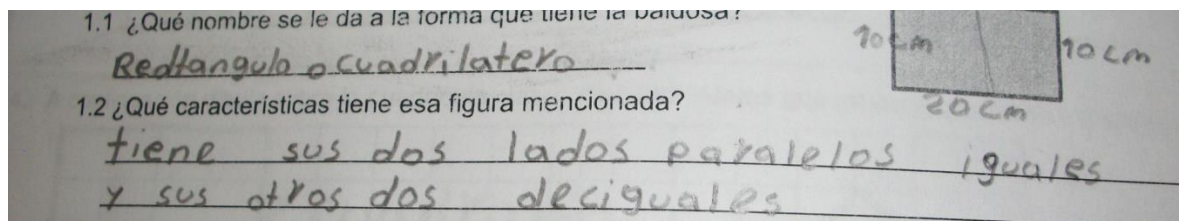 1.1 ¿Qué nombre se le da a la forma que tiene la baldosa?
Redtangulo o cuadrilatero
10 cm
10 cm
1.2 ¿Qué características tiene esa figura mencionada?
20 cm
tiene sus dos lados paralelos iguales
y sus otros dos deciguales